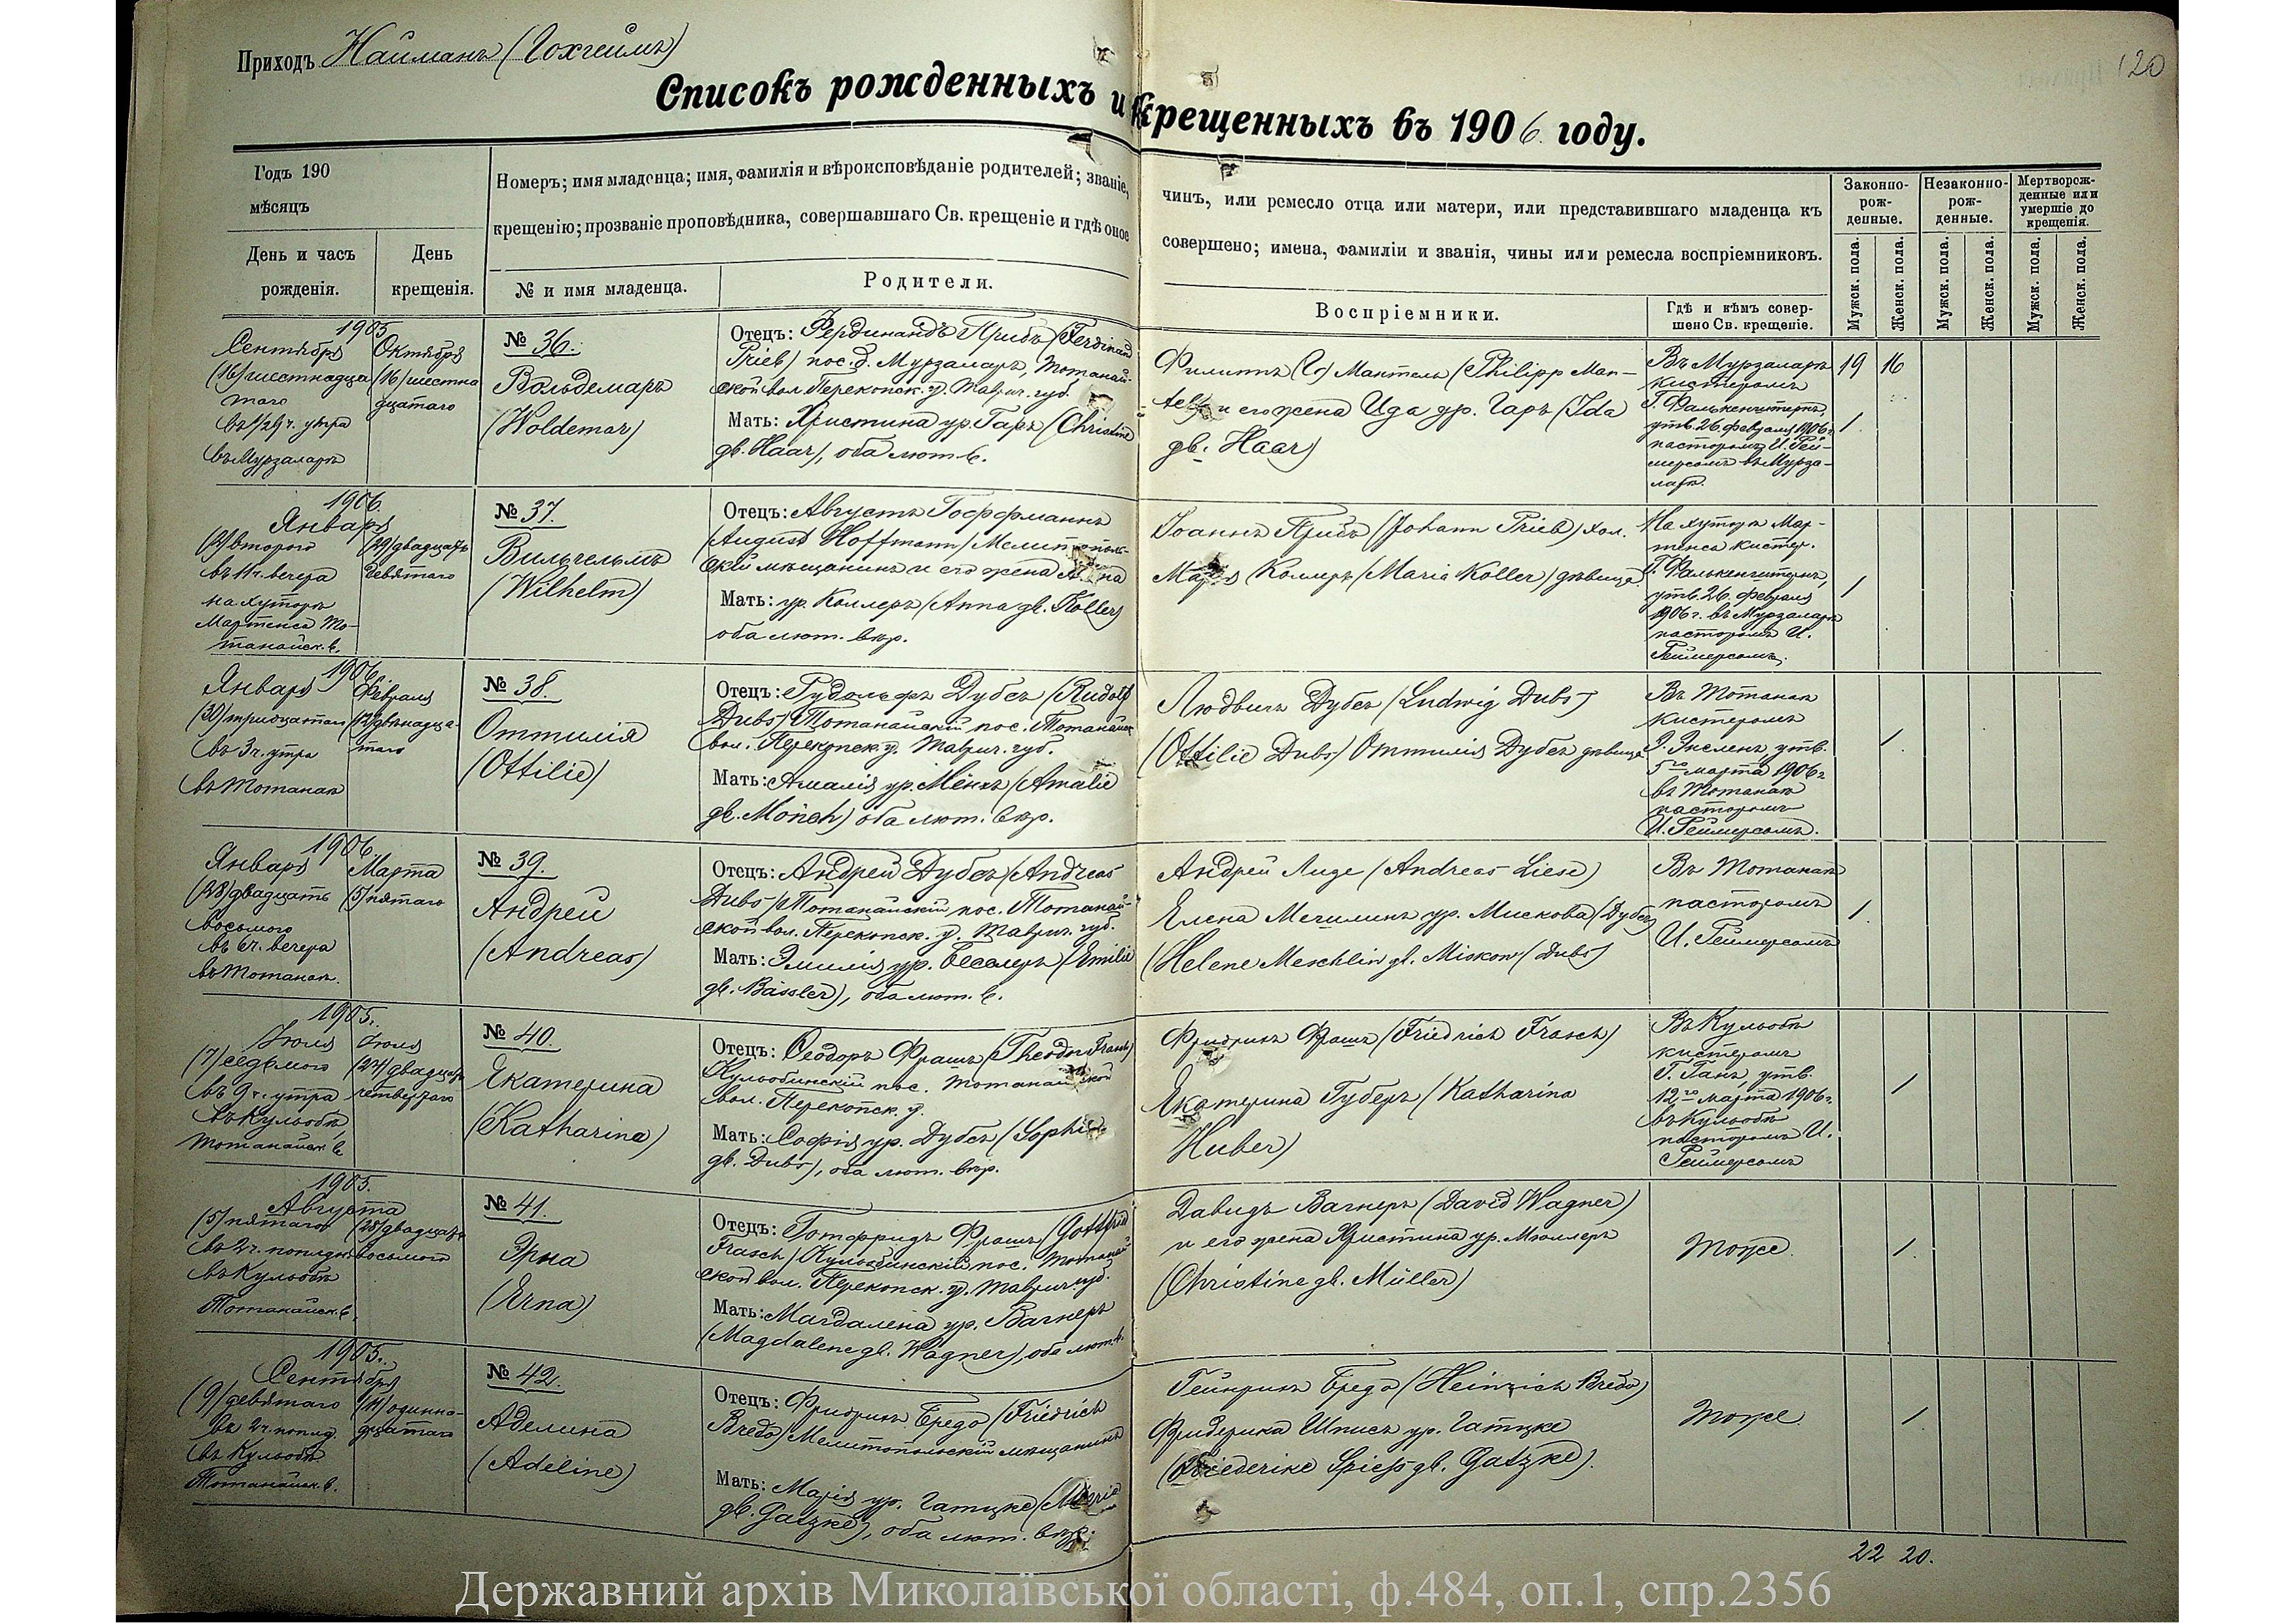 Приходъ Найманъ (Гохгеймъ)
120
Списокъ рожденныхъ и крещенныхъ въ 1906 году.
Годъ 190
мѣсяцъ
День и часъ
рожденія.
День
крещенія.
Номеръ; имя младенца; имя, фамилія и вѣроисповѣданіе родителей; званіе,
крещенію; прозваніе проповѣдника, совершавшаго Св. крещеніе и гдѣ оное
№ и имя младенца.
Родители.
чинъ, или ремесло отца или матери, или представившаго младенца къ
совершено; имена, фамиліи и званія, чины или ремесла воспріемниковъ.
Воспріемники.
Гдѣ и кѣмъ совер-
шено Св. крещеніе.
Законно-
рож-
денные.
Незаконно-
рож-
денные.
Мертворож-
денные или
умершіе до
крещенія.
Мужск. пола.
Женск. пола.
Мужск. пола.
Женск. пола.
Мужск. пола.
Женск. пола.
1905
Сентября
(16) шестнадца
таго
въ 1/2 9 ч. утра
въ Мурзаларѣ
Октября
(16) шестна
дцатаго
№ 36.
Вольдемаръ
(Woldemar)
Отецъ: Фердинандъ Прибъ (Ferdinand
Prieb) пос. д. Мурзаларъ, Тотанай-
ской вол. Перекопск. у. Таврич. губ.
Мать: Христина ур. Гаръ (Christine
gb. Haar), оба лют. в.
Филиппъ (G) Мантель (Philipp Man-
tel) и его жена Ида ур. Гаръ (Ida
gb. Haar)
Въ Мурзаларѣ
кистеромъ
Г. Фалькенштернъ,
утв. 26. февраля 1906 г.
пасторомъ И. Гей-
мерсомъ въ Мурза-
ларѣ.
19 16
1.
1906.
Января
(2) второго
въ 11 ч. вечера
на хуторѣ
Мартенса То-
танайск. в.
(29) двадцать
девятаго
№ 37.
Вильгельмъ
(Wilhelm)
Отецъ: Августъ Гоффманнъ
(August Hoffmann) Мелитополь-
скій мѣщанинъ и его жена Анна
Мать: ур. Коллеръ (Anna gb. Koller)
оба лют. вѣр.
Іоаннъ Прибъ (Johann Prieb) хол.
Марія Коллеръ (Maria Koller) дѣвица
На хуторѣ Мар-
тенса кистер.
Г. Фалькенштернъ,
утв. 26. февраля
1906 г. въ Мурзаларѣ
пасторомъ И.
Геймерсомъ.
1
1906.
Января
(30) тридцатаго
въ 3 ч. утра
въ Тотанаѣ
Февраля
(12) двѣнадца-
таго
№ 38.
Оттилія
(Ottilie)
Отецъ: Рудольфъ Дубсъ (Rudolf
Dubs) Тотанайскій пос. Тотанайск
вол. Перекопск. у. Таврич. губ.
Мать: Амалія ур. Мёнхъ (Amalie
gb. Mönch) оба лют. вѣр.
Людвигъ Дубсъ (Ludwig Dubs)
(Ottilie Dubs) Оттилія Дубсъ дѣвица
Въ Тотанаѣ
кистеромъ
утв.
5го марта 1906 г.
въ Тотанаѣ
пасторомъ
И. Геймерсомъ.
1.
1906
Января
(28) двадцать
восьмого
въ 6 ч. вечера
въ Тотанаѣ.
Марта
(5) пятаго
№ 39.
Андрей
(Andreas)
Отецъ: Андрей Дубсъ (Andreas
Dubs) Тотанайскій пос. Тотанай-
ской вол. Перекопск. у. Таврич. губ.
Мать: Эмилія ур. Бесслеръ (Emilie
gb. Bässler), оба лют. в.
Андрей Лизе (Andreas Liese)
Елена Мешлинъ ур. Мискова (Дубсъ)
(Helene Meschlin gb. Miskow (Dubs)
Въ Тотанаѣ
пасторомъ
И. Геймерсомъ
1.
1905.
Іюля
(7) седьмого
въ 9 ч. утра
въ Кульобѣ,
Тотанайск. в.
Іюля
(24) двадцать
четвертаго
№ 40.
Екатерина
(Katharina)
Отецъ: Ѳеодоръ Фрашъ (Theodor Frasch)
Кульобинскій пос. Тотанайской
вол. Перекопск. у.
Мать: Софія ур. Дубсъ (Sophie
gb. Dubs), оба лют. вѣр.
Фридрихъ Фрашъ (Friedrich Frasch)
Екатерина Губеръ (Katharina
Huber)
Въ Кульобѣ
кистеромъ
Г. Ганъ, утв.
12го марта 1906 г.
въ Кульобѣ
пасторомъ И.
Геймерсомъ
1
1905.
Августа
(5) пятаго
въ 2 ч. пополдн.
въ Кульобѣ
Тотанайск. в.
(28) двадцать
восьмого
№ 41.
Эрна
(Erna)
Отецъ: Готфридъ Фрашъ (Gottfried
Frasch) Кульобинскій пос. Тотанай
ской вол. Перекопск. у. Таврич. губ.
Мать: Магдалена ур. Вагнеръ
(Magdalene gb. Wagner), оба лют. в.
Давидъ Вагнеръ (David Wagner)
и его жена Христина ур. Мюллеръ
(Christine gb. Müller)
Тоже.
1.
1905.
Сентября
(9) девятаго
въ 2 ч. попол.
въ Кульобѣ
Тотанайск. в.
(11) одинна-
дцатаго
№ 42.
Аделина
(Adeline)
Отецъ: Фридрихъ Бредо (Friedrich
Bredo) Мелитопольскій мѣщанинъ
Мать: Марія ур. Гатцке (Maria
gb. Gatzke), оба лют. вѣр.
Гейнрихъ Бредо (Heinrich Bredo)
Фридерика Шписъ ур. Гатцке
(Friederike Spiess gb. Gatzke).
Тоже
1
22 20.
Державний архів Миколаївської області, ф.484, оп.1, спр.2356